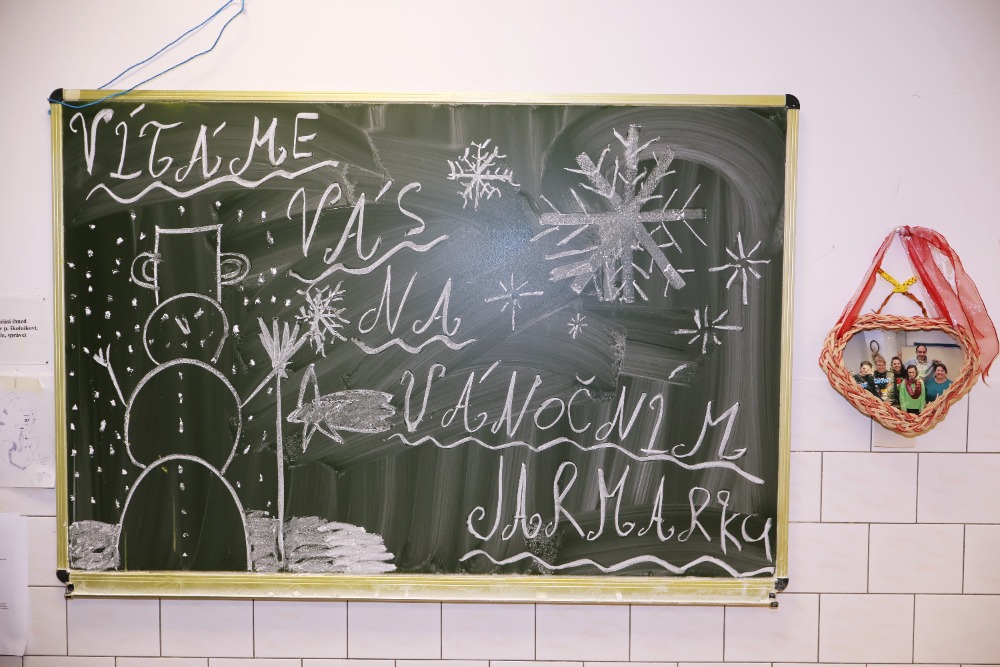 VÍTÁME
VÁS
NA
VÁNOČNIM
JARMARKU